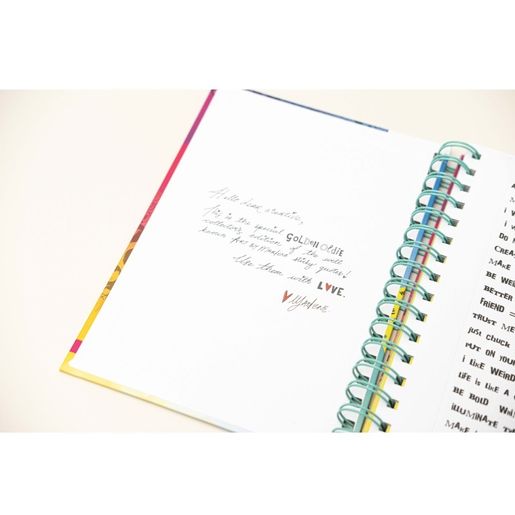 Hello dear creative,
This is the special GOLDEN OLDIE
collectors edition of the well
known Art by Marlene sticky quotes!
Use them with LOVE.
Marlene
MAKE
I W
I W
DO M
CREA
MAKE
BE WEI
BETTER
FRIEND =
TRUST ME
just chuck
PUT ON YOUR
i LiKE WEiRD
LiFE iS LiKE A C
BE BOLD WEiR
iLLUMiNATE T
MAKE I